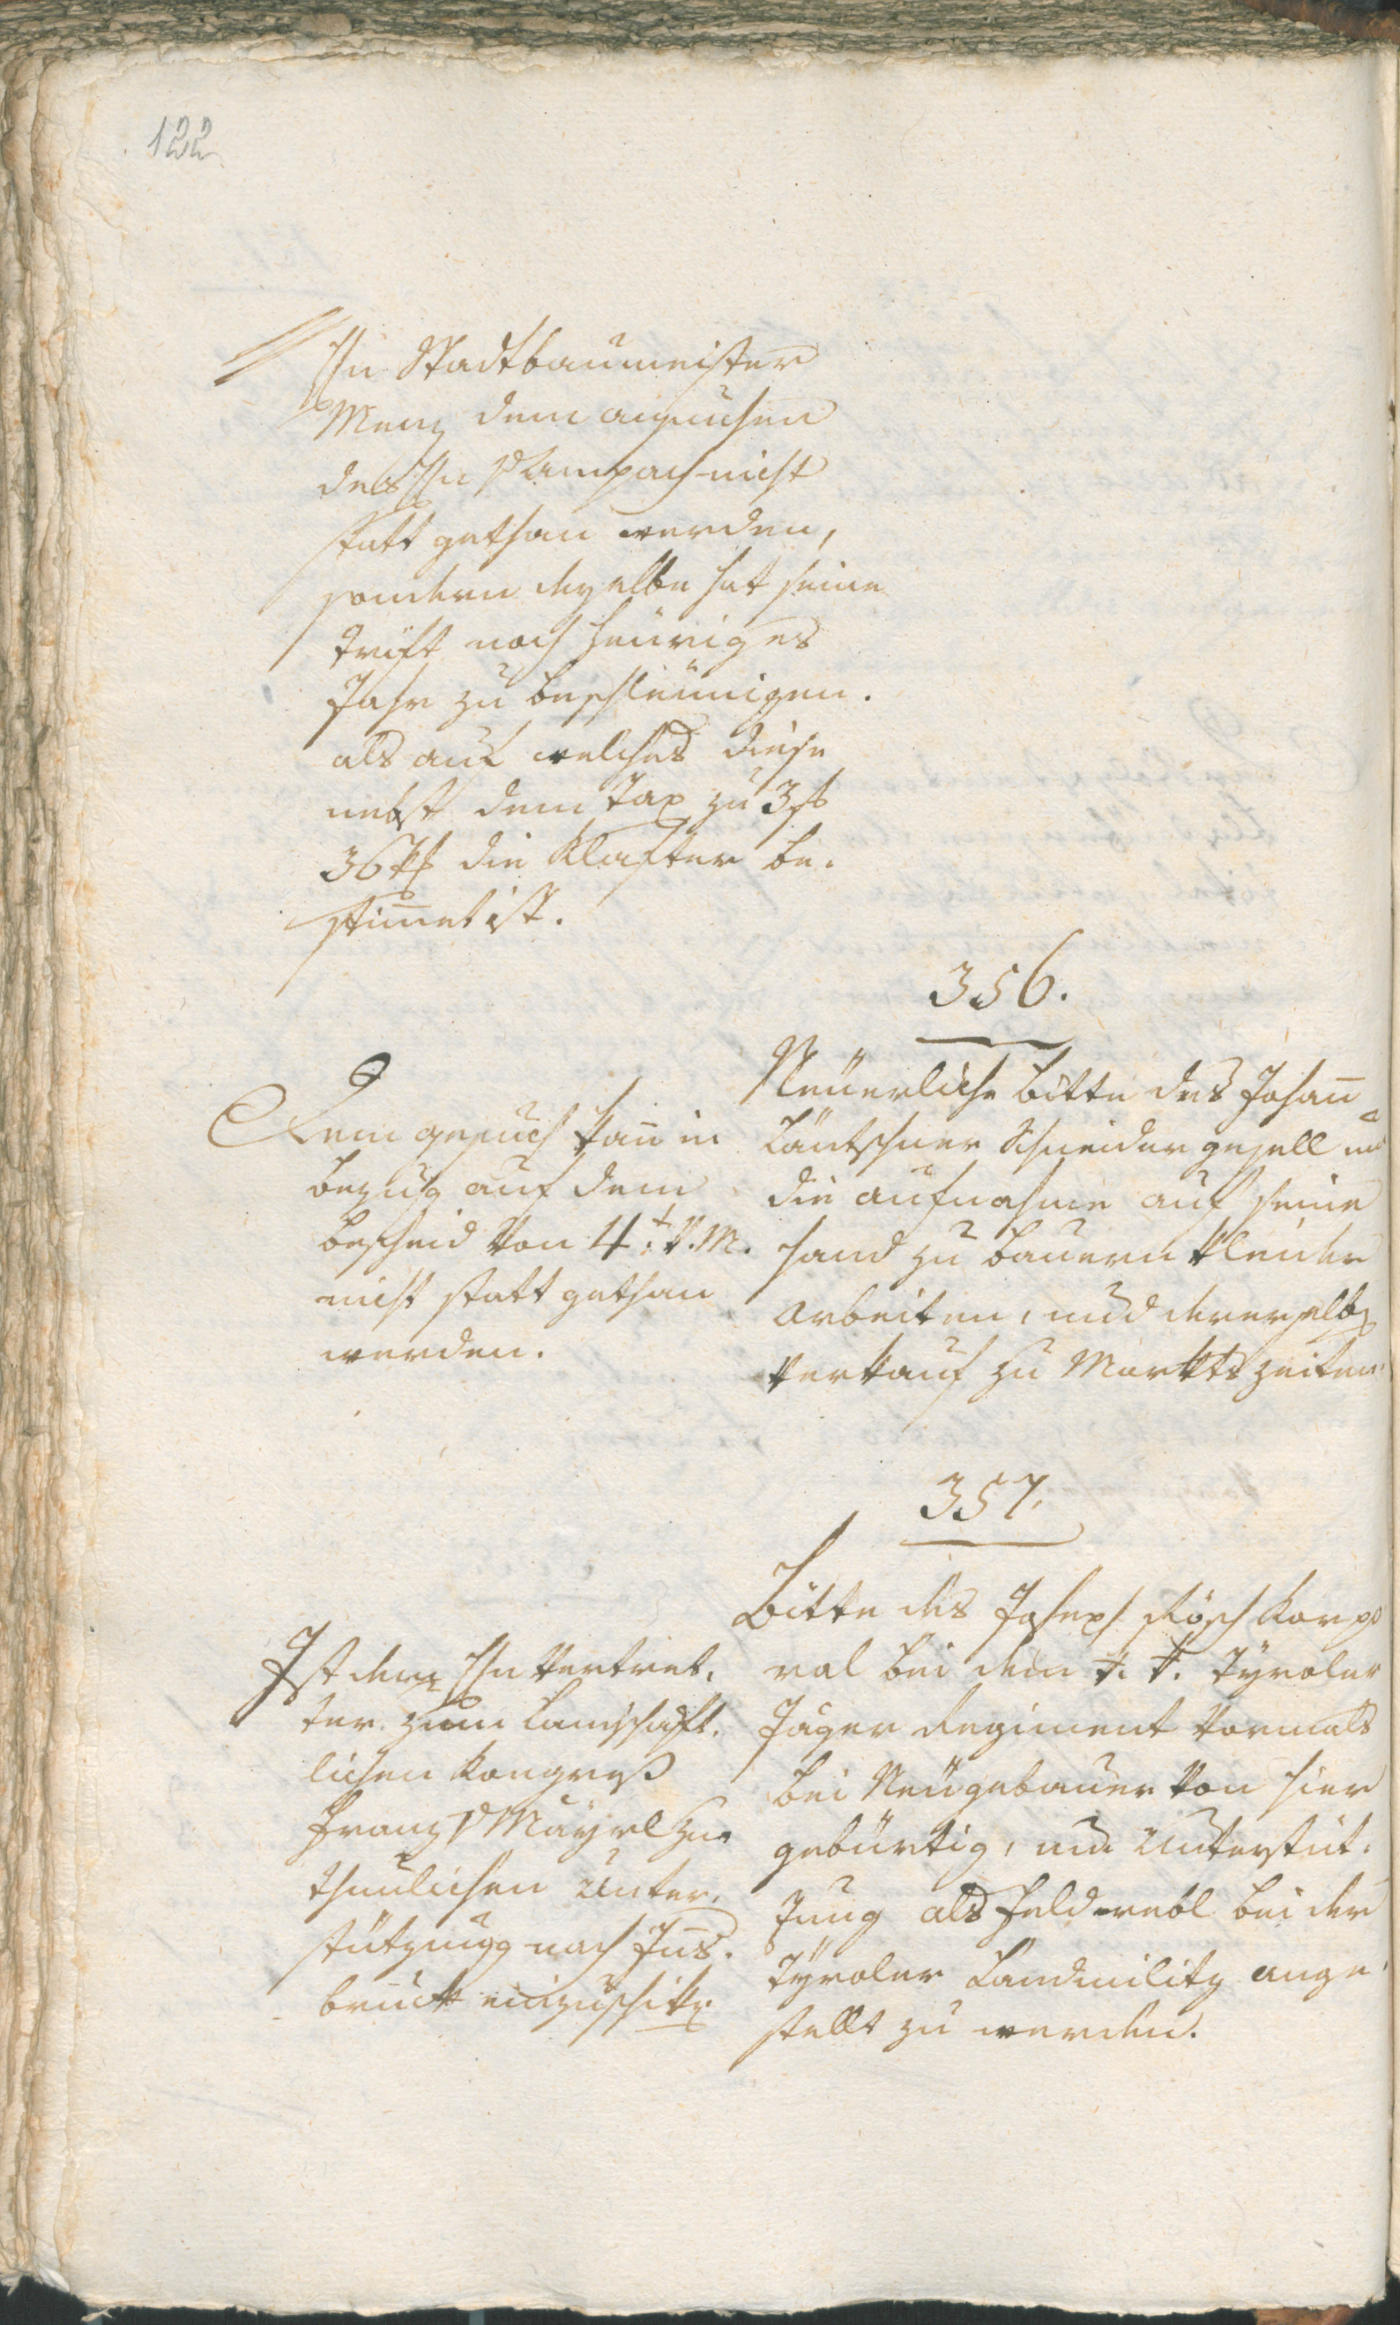 122
Hn Stadtbaumeister
Menz dem ansuchen
des Hn v Lumpach nicht
statt gethan werden,
sondern derselbe hat seine
Trift noch heüriges
Jahr zu beschleünigen.
als auf welches diese
nebst dem Tax zu 3 f
36 kr die Klafter be-
stimet ist.
356.
Neüerliche bitte des Johan
Läntschner Schneidergesell um
die aufnahme auf seine
hand zu bauern kleider
arbeiten, und derenselb
verkauf zu Marktszeiten.
Dem gesuch kan in
bezug auf dem
bescheid von 4t v. M.
nicht statt gethan
werden.
357.
Bitte des Joseph Kösch Korpo
ral bei dem k. k. Tyroler
Jäger Regiment vormals
bei Neügebauer von hier
gebürtig, um Unterstüt-
zung als Feldwebl bei der
Tyroler Landmilitz ange-
stellt zu werden.
Ist dem Hn Vertret-
ter zum Landschaft-
lichen Kongreß
Franz v Mayrl zur
thunlichen Unter-
stützung nach Ins-
bruck einzuschiken